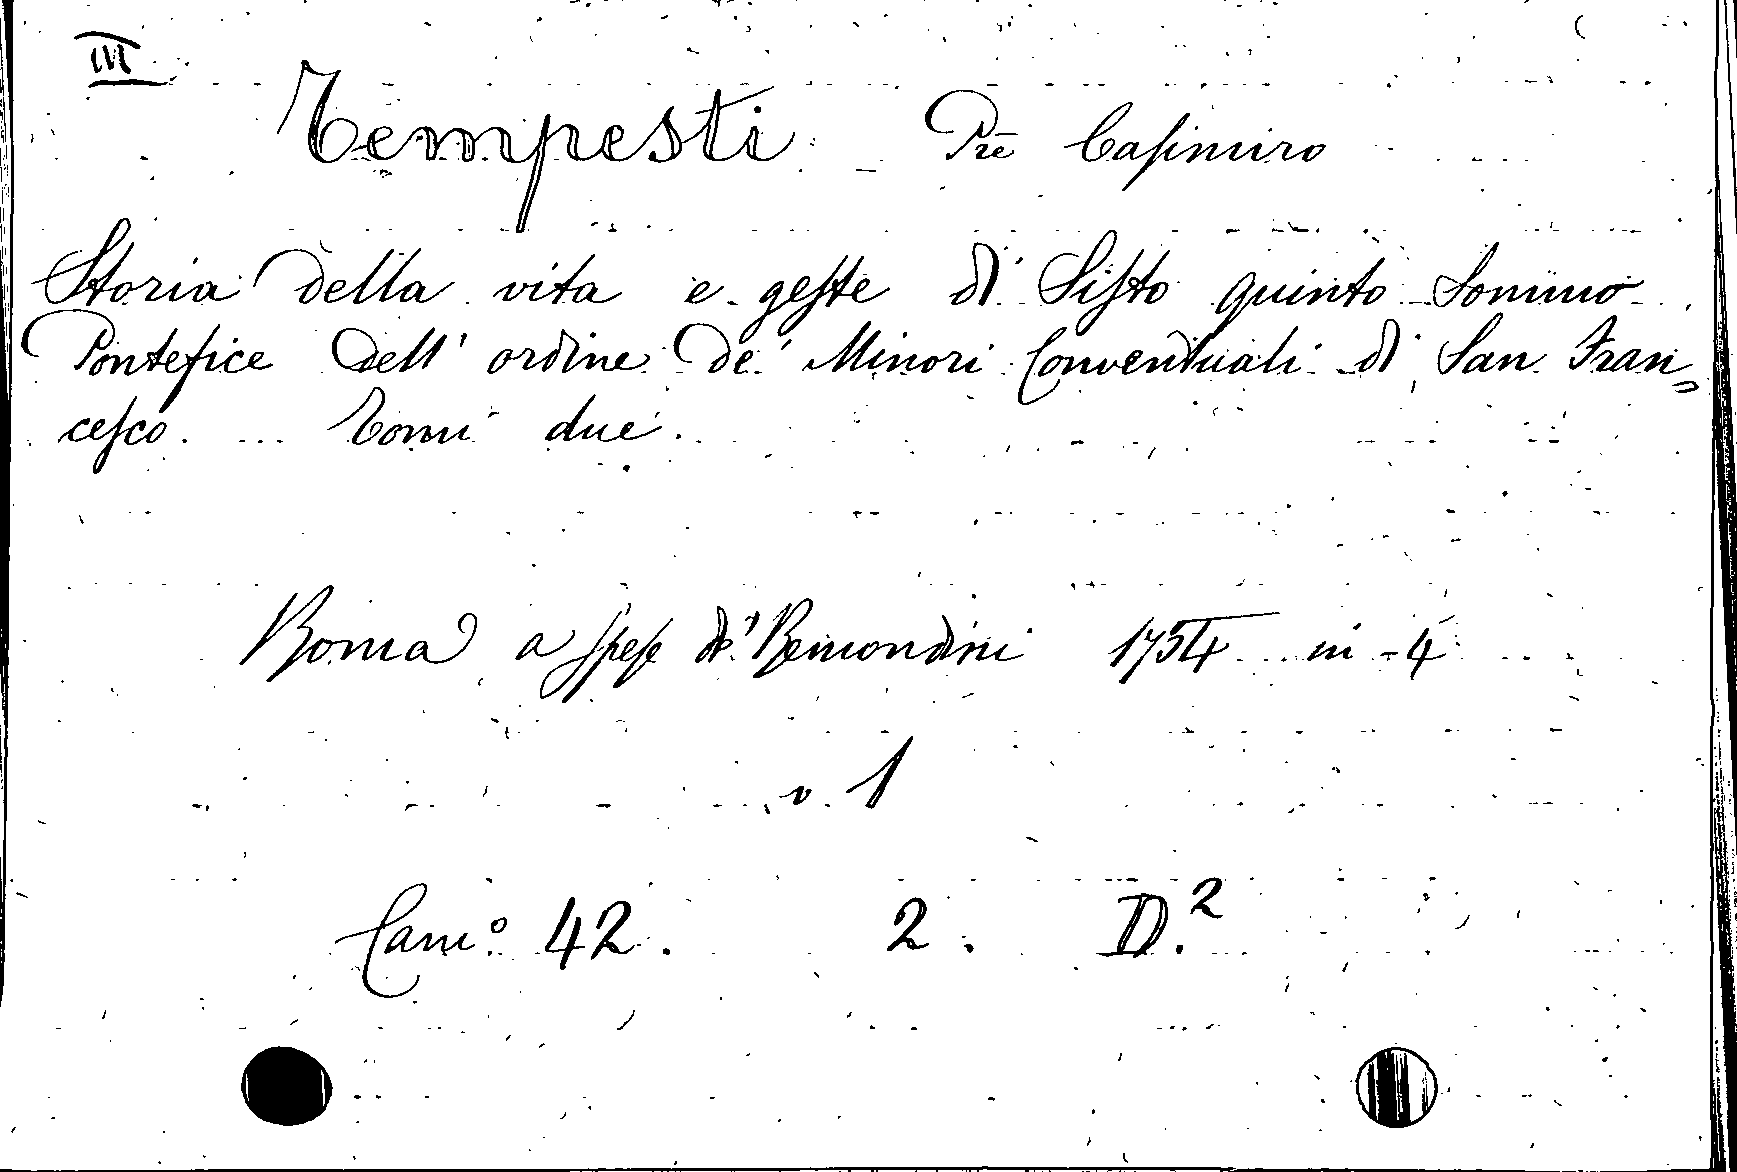 III
Tempesti Prē Casimiro
Storia della vita e geste di Sisto quinto Sommo
Pontefice dell' ordine de' Minori Conventuali di San Fran=
cesco. Tomi due.
Roma a spese de' Remondini 1754 in-4
v. 1
Cam.º 42. 2. D.²